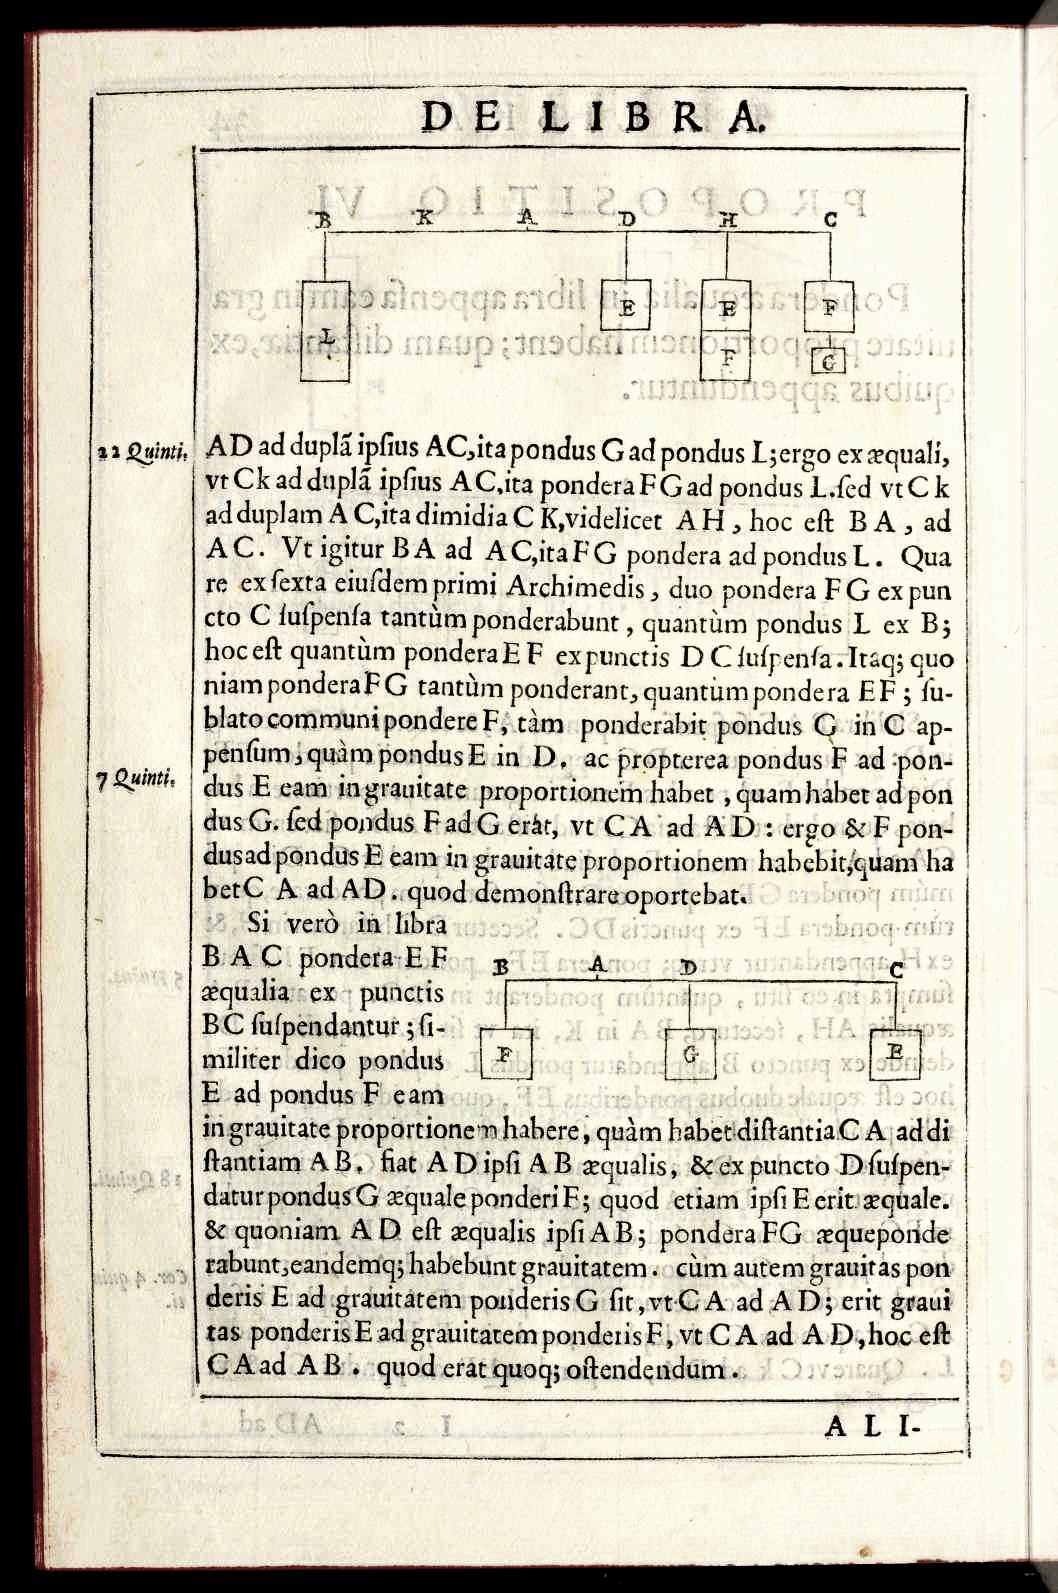 DE LIBRA.
B K A D H C
E E F
L F G
22 Quinti. AD ad duplã ipſius AC, ita pondus G ad pondus L; ergo ex æquali,
vt Ck ad duplã ipſius AC, ita pondera FG ad pondus L. ſed vt Ck
ad duplam AC, ita dimidia CK, videlicet AH, hoc eſt BA, ad
AC. Vt igitur BA ad AC, ita FG pondera ad pondus L. Qua
re ex ſexta eiuſdem primi Archimedis, duo pondera FG ex pun
cto C ſuſpenſa tantùm ponderabunt, quantùm pondus L ex B;
hoc eſt quantùm pondera EF ex punctis DC ſuſpenſa. Itaq; quo
niam pondera FG tantùm ponderant, quantùm pondera EF; ſu-
blato communi pondere F, tàm ponderabit pondus G in C ap-
penſum, quàm pondus E in D. ac propterea pondus F ad pon-
7 Quinti. dus E eam in grauitate proportionem habet, quam habet ad pon
dus G. ſed pondus F ad G erat, vt CA ad AD: ergo & F pon-
dus ad pondus E eam in grauitate proportionem habebit, quam ha
bet CA ad AD. quod demonſtrare oportebat.
Si verò in libra
BAC pondera EF
æqualia ex punctis
BC ſuſpendantur; ſi-
militer dico pondus
E ad pondus F eam
B A D C
F G E
in grauitate proportionem habere, quàm habet diſtantia CA ad di
ſtantiam AB. fiat AD ipſi AB æqualis, & ex puncto D ſuſpen-
datur pondus G æquale ponderi F; quod etiam ipſi E erit æquale.
& quoniam AD eſt æqualis ipſi AB; pondera FG æqueponde
rabunt, eandemq; habebunt grauitatem. cùm autem grauitas pon
deris E ad grauitatem ponderis G ſit, vt CA ad AD; erit graui
tas ponderis E ad grauitatem ponderis F, vt CA ad AD, hoc eſt
CA ad AB. quod erat quoq; oſtendendum.
ALI-